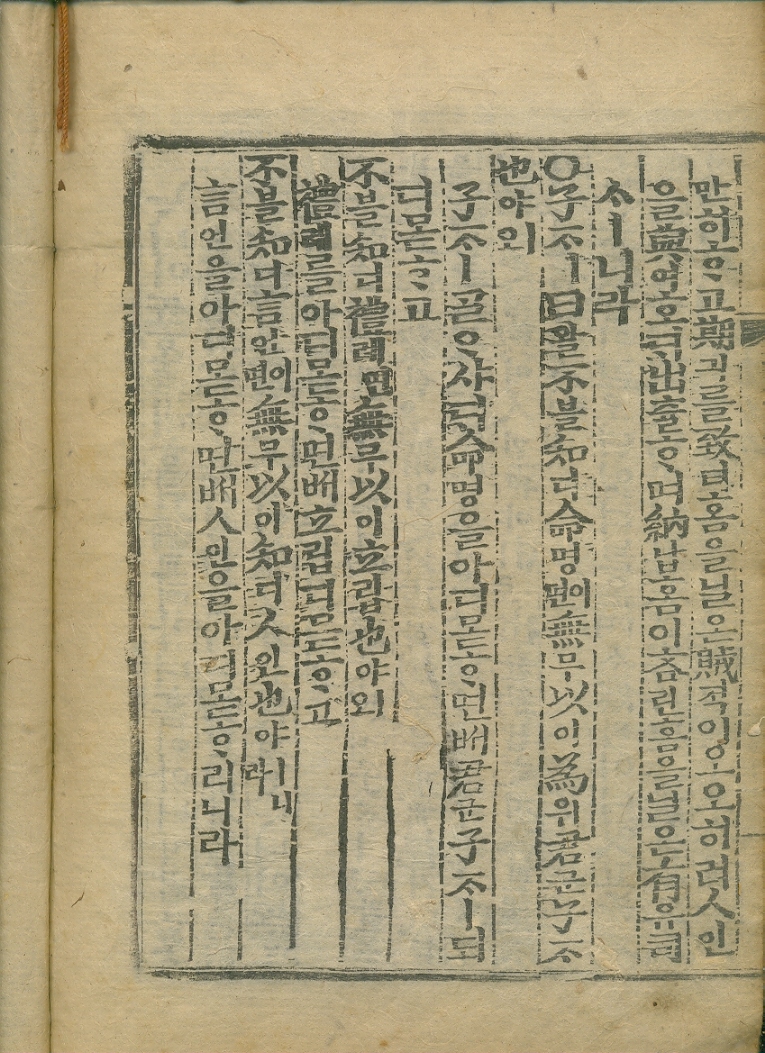 만히ᄒᆞ고期긔ᄅᆞᆯ致티홈을닐온賊적이오오히려人인
을與여호ᄃᆡ出츌ᄒᆞ며納납홈이吝린홈을닐온有유司
ᄉᆞㅣ니라
○子ᄌᆞㅣ曰왈不블知디命명이면無무以이為위君군子ᄌᆞ
也야오
子ᄌᆞㅣ ᄀᆞᆯᄋᆞ샤ᄃᆡ命명을아디몯ᄒᆞ면ᄡᅥ君군子ᄌᆞㅣ되
디몯ᄒᆞ고
不블知디禮례면無무以이立립也야오
禮례ᄅᆞᆯ아디몯ᄒᆞ면ᄡᅥ立립디몯ᄒᆞ고
不블知디言언이면無무以이知디人인也야ㅣ니라
言언을아디몯ᄒᆞ면ᄡᅥ人인을아디몯ᄒᆞ리니라